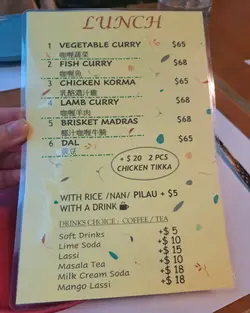 LUNCH
1 VEGETABLE CURRY $65
咖喱蔬菜
2 FISH CURRY $68
咖喱魚
3 CHICKEN KORMA $65
乳酪濃汁雞
4 LAMB CURRY $68
咖喱羊肉
5 BRISKET MADRAS $68
椰汁咖喱牛腩
6 DAL $65
+ $ 20 2 PCS
CHICKEN TIKKA
WITH RICE /NAN/ PILAU + $5
WITH A DRINK
DRINKS CHOICE : COFFEE / TEA
Soft Drinks +$ 5
Lime Soda +$ 10
Lassi +$ 15
Masala Tea +$ 10
Milk Cream Soda +$ 18
Mango Lassi +$ 18